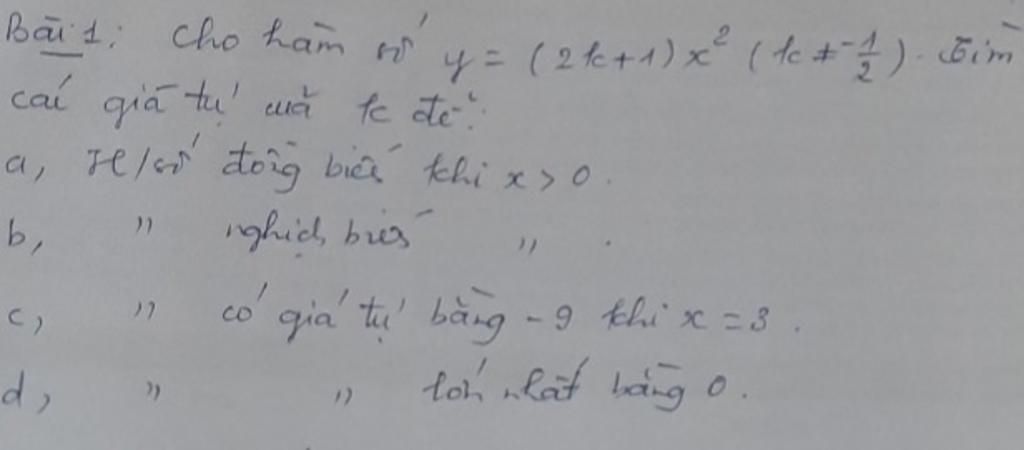 Bài 1: Cho hàm số y = (2k+1)x² (k ≠ -1/2). Tìm
các giá trị của k để:
a, H/số đồng biến khi x > 0.
b, " nghịch biến " .
c, " có giá trị bằng -9 khi x = 3 .
d, " " lớn nhất bằng 0.